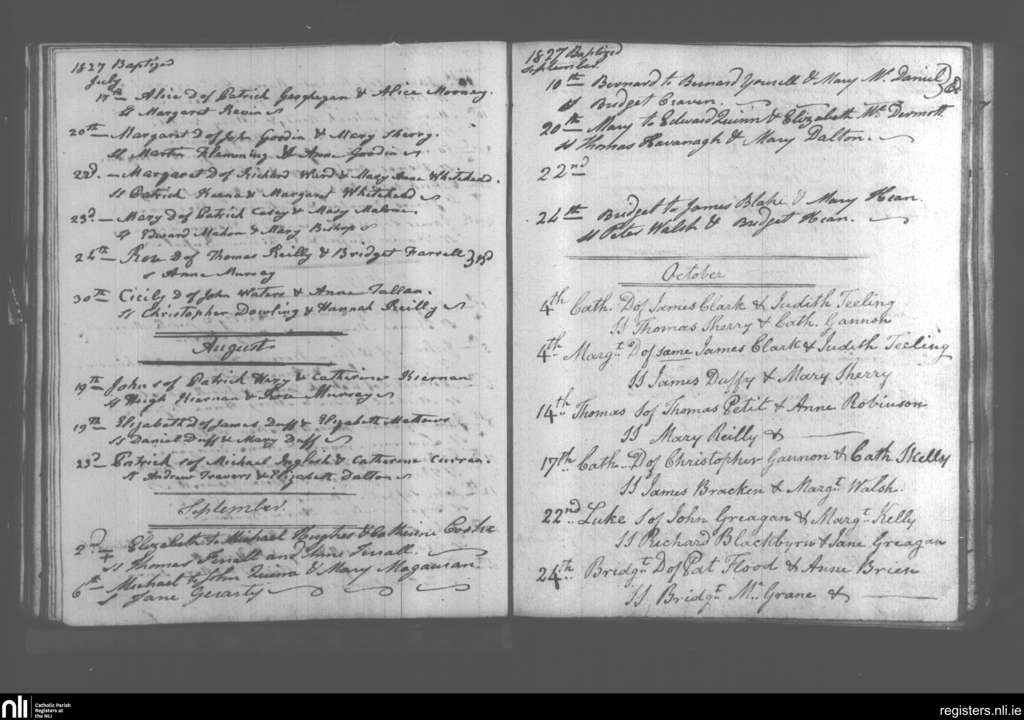 1827 Baptized
July
Alice D of Patrick Geoghegan & Alice Mooney.
SS Margaret Kevin
20th Margaret D of John Goodin & Mary Sherry.
SS Martin Flemming & Anne Goodin
22d. Margaret D of Richard Ward & Mary Anne Whitehead.
SS Patrick Keena & Margaret Whitehead
23d. Mary D of Patrick Casey & Mary Malone.
SS Edward Mahon & Mary Bishop
24th Rose D of Thomas Reilly & Bridget Farrell
s Anne Murray
30th Cicily D of John Waters & Anne Tallan.
SS Christopher Dowling & Hannah Reilly
August
19th John s of Patrick Wary & Catherine Kiernan
SS Hugh Kiernan & Rose Murray
19th Elizabeth D of James Duff & Elizabeth Mathews
SS Daniel Duff & Mary Duff
23d Patrick s of Michael English & Catherine Curran.
SS Andrew Travers & Elizabeth Dalton
September.
2d Elizabeth to Michael Hughes & Catherine
SS Thomas and Anne
6th Michael to John Quinn & Mary Magauran
s Jane Gerarty
1827 Baptized
September.
10th Bernard to Bernard Yousell & Mary Mc Daniel
SS Bridget Craven.
20th Mary to Edward Quinn & Elizabeth Mc Dermott
SS Thomas Kavanagh & Mary Dalton.
22nd
24th Bridget to James Blake & Mary Hean.
SS Peter Walsh & Bridget Hean.
October
4th Cath. D of James Clark & Judith Teeling
SS Thomas Sherry & Cath. Gannon
4th Margt. D of same James Clark & Judith Teeling
SS James Duffy & Mary Sherry
14th Thomas S of Thomas Petit & Anne Robinson
SS Mary Reilly &
17th Cath. D of Christopher Gannon & Cath Skelly
SS James Bracken & Margt. Walsh.
22nd Luke S of John Greagan & Margt. Kelly
SS Richard Blackbyrn & Jane Greagan
24th Bridgt. D of Pat Flood & Anne Brien
SS Bridgt. Mc Grane &
nli Catholic Parish
Registers at
the NLI
registers.nli.ie